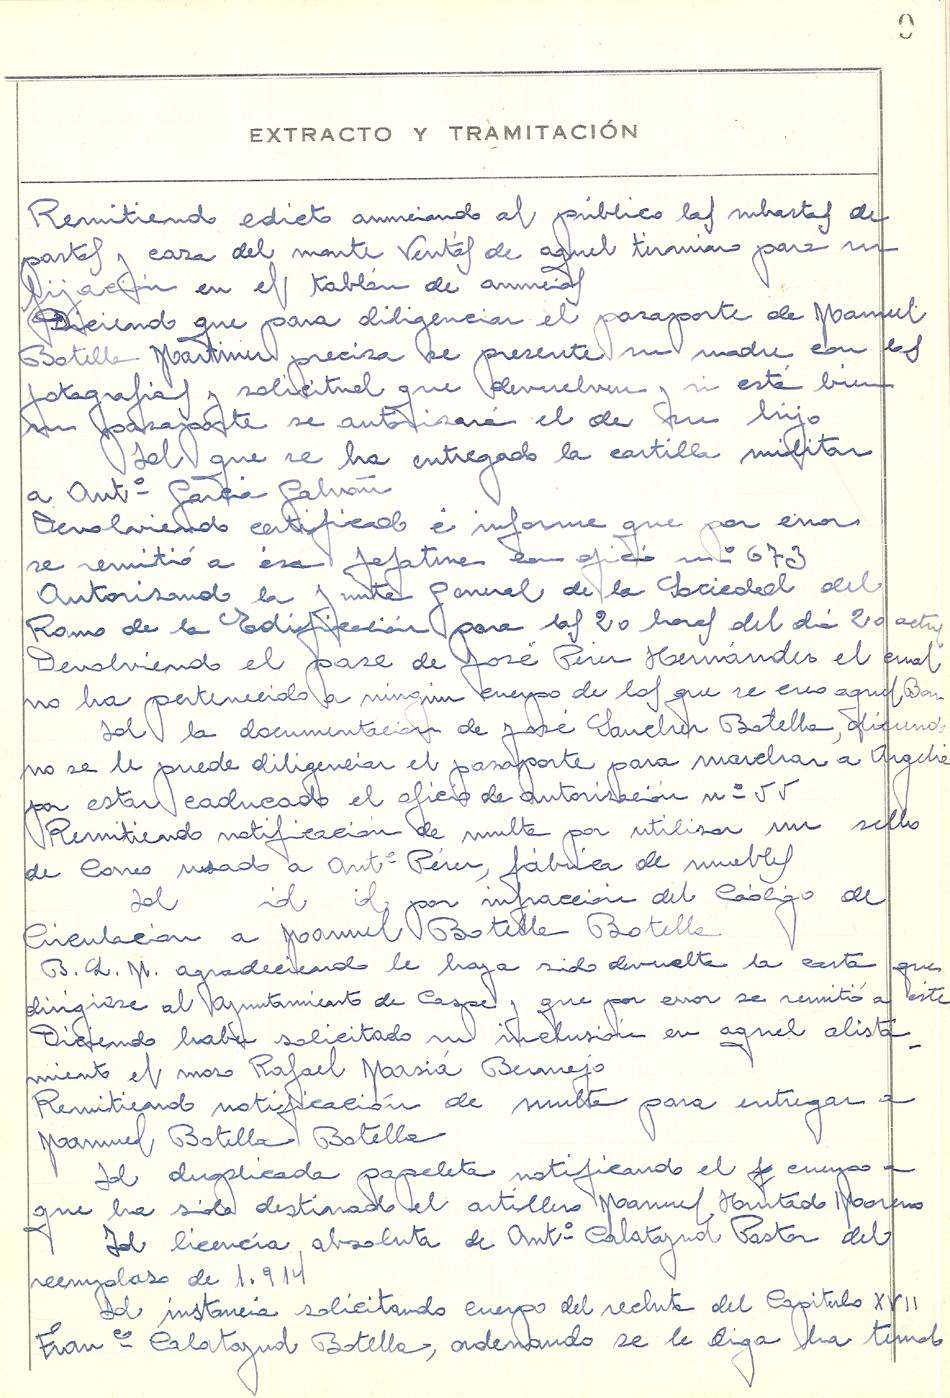 EXTRACTO Y TRAMITACIÓN
Remitiendo edicto anunciando al público las subastas de
pastos y caza del monte Ventós de aquel término para su
fijación en el tablón de anuncios
Diciendo que para diligenciar el pasaporte de Manuel
Botella Martinez precisa se presente su madre con las
fotografias y solicitud que devuelven y si está bien
su pasaporte se autorizará el de su hijo
Id que se ha entregado la cartilla militar
a Antº Garcia Galván
Devolviendo certificado é informe que por error
se remitió a ésa Jefatura con oficio nº 673
Autorizando la Junta General de la Sociedad del
Ramo de la Edificación para las 20 horas del dia 20 actual
Devolviendo el pase de José Pérez Hernández el cual
no ha pertenecido a ningún cuerpo de los que se creo aquel
Id la documentación de José Sanchez Botella, diciendo
no se le puede diligenciar el pasaporte para marchar a Argelia
por estar caducado el oficio de autorización nº 55
Remitiendo notificación de multa por utilizar un sello
de Correo usado a Antº Pérez, fábrica de muebles
Id id id por infracción del Código de
Circulación a Manuel Botella Botella
B. L. M. agradeciendo le haya sido devuelta la carta que
dirigiese al Ayuntamiento de Caspe y que por error se remitió a éste
Diciendo haber solicitado su inclusión en aquel alista-
miento el mozo Rafael Masiá Bermejo
Remitiendo notificación de multa para entregar a
Manuel Botella Botella
Id duplicada papeleta notificando el cuerpo a
que ha sido destinado el artillero Manuel Hurtado Moreno
Id licencia absoluta de Antº Calatayud Pastor del
reemplazo de 1.914
Id instancia solicitando cuerpo del recluta del Capitulo XVII
Franco Calatayud Botella, ordenando se le diga ha tenido